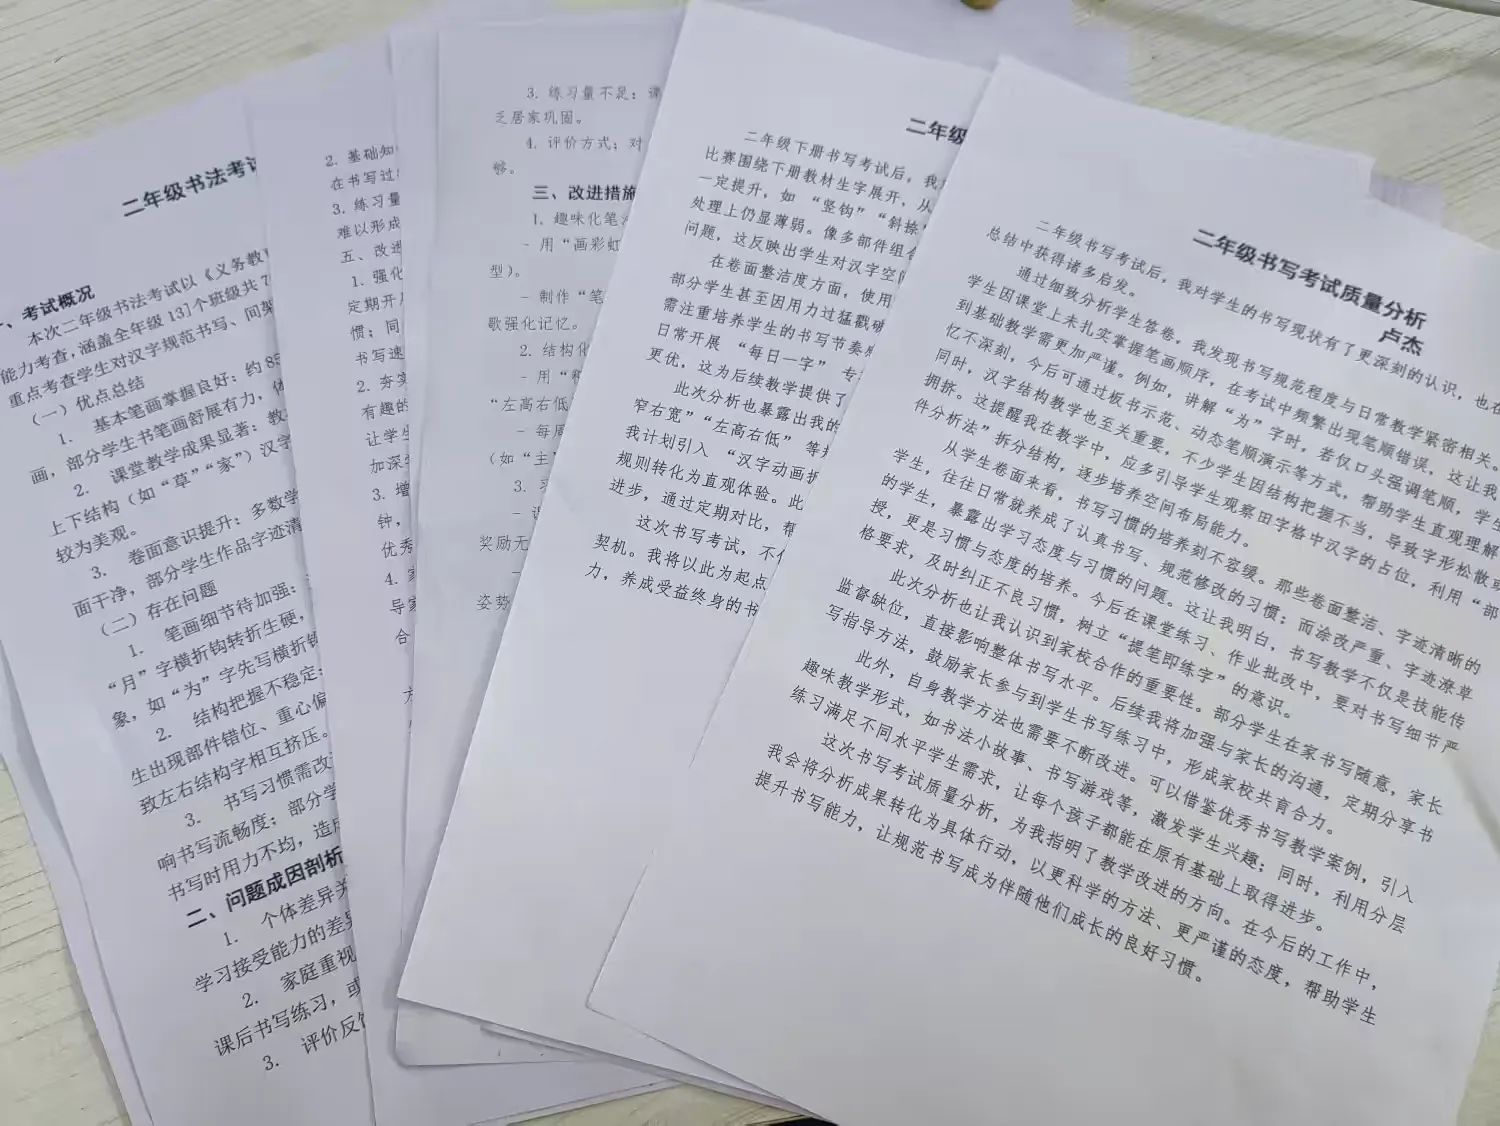 二年级书法考试
一、考试概况
本次二年级书法考试以《义务教
能力考查，涵盖全年级 13]个班级共 7
重点考查学生对汉字规范书写、间架
（一）优点总结
1. 基本笔画掌握良好：约 85
画，部分学生书笔画舒展有力，体
2. 课堂教学成果显著：教
上下结构（如“草”“家”）汉字
较为美观。
3. 卷面意识提升：多数学
面干净，部分学生作品字迹清
（二）存在问题
1. 笔画细节待加强：
“月”字横折钩转折生硬，
象，如“为”字先写横折钩
2. 结构把握不稳定：
生出现部件错位、重心偏
致左右结构字相互挤压。
3. 书写习惯需改
响书写流畅度；部分学
书写时用力不均，造成
二、问题成因剖析
1. 个体差异关
学习接受能力的差异
2. 家庭重视
课后书写练习，或
3. 评价反馈
2. 基础知
在书写过
3. 练习量
难以形成
五、改进
1. 强化
定期开展
惯；同
书写速
2. 夯实
有趣的
让学生
加深
3. 增
钟，
优秀
4. 家
导家
合
3. 练习量不足：课
乏居家巩固。
4. 评价方式：对
够。
三、改进措施
1. 趣味化笔
- 用“画彩虹
型）。
- 制作“笔
歌强化记忆。
2. 结构化
- 用“
“左高右低
- 每周
（如“主”
3.
奖励无
姿势
二年级
二年级下册书写考试后，我
比赛围绕下册教材生字展开，从
一定提升，如“竖钩”“斜捺”
处理上仍显薄弱。像多部件组合
问题，这反映出学生对汉字空间
在卷面整洁度方面，使用
部分学生甚至因用力过猛戳破
需注重培养学生的书写节奏
日常开展“每日一字”专
更优，这为后续教学提供了
此次分析也暴露出我的
窄右宽”“左高右低”等
我计划引入“汉字动画拆
规则转化为直观体验。此
进步，通过定期对比，帮
这次书写考试，不仅
契机。我将以此为起点
力，养成受益终身的书
二年级书写考试质量分析
卢杰
二年级书写考试后，我对学生的书写现状有了更深刻的认识，也在
总结中获得诸多启发。
通过细致分析学生答卷，我发现书写规范程度与日常教学紧密相关。
学生因课堂上未扎实掌握笔画顺序，在考试中频繁出现笔顺错误，这让我
到基础教学需更加严谨。例如，讲解“为”字时，若仅口头强调笔顺，学生
忆不深刻，今后可通过板书示范、动态笔顺演示等方式，帮助学生直观理解
同时，汉字结构教学也至关重要，不少学生因结构把握不当，导致字形松散或
拥挤。这提醒我在教学中，应多引导学生观察田字格中汉字的占位，利用“部
件分析法”拆分结构，逐步培养空间布局能力。
从学生卷面来看，书写习惯的培养刻不容缓。那些卷面整洁、字迹清晰的
学生，往往日常就养成了认真书写、规范修改的习惯；而涂改严重、字迹潦草
的学生，暴露出学习态度与习惯的问题。这让我明白，书写教学不仅是技能传
授，更是习惯与态度的培养。今后在课堂练习、作业批改中，要对书写细节严
格要求，及时纠正不良习惯，树立“提笔即练字”的意识。
此次分析也让我认识到家校合作的重要性。部分学生在家书写随意，家长
监督缺位，直接影响整体书写水平。后续我将加强与家长的沟通，定期分享书
写指导方法，鼓励家长参与到学生书写练习中，形成家校共育合力。
此外，自身教学方法也需要不断改进。可以借鉴优秀书写教学案例，引入
趣味教学形式，如书法小故事、书写游戏等，激发学生兴趣；同时，利用分层
练习满足不同水平学生需求，让每个孩子都能在原有基础上取得进步。
这次书写考试质量分析，为我指明了教学改进的方向。在今后的工作中，
我会将分析成果转化为具体行动，以更科学的方法、更严谨的态度，帮助学生
提升书写能力，让规范书写成为伴随他们成长的良好习惯。